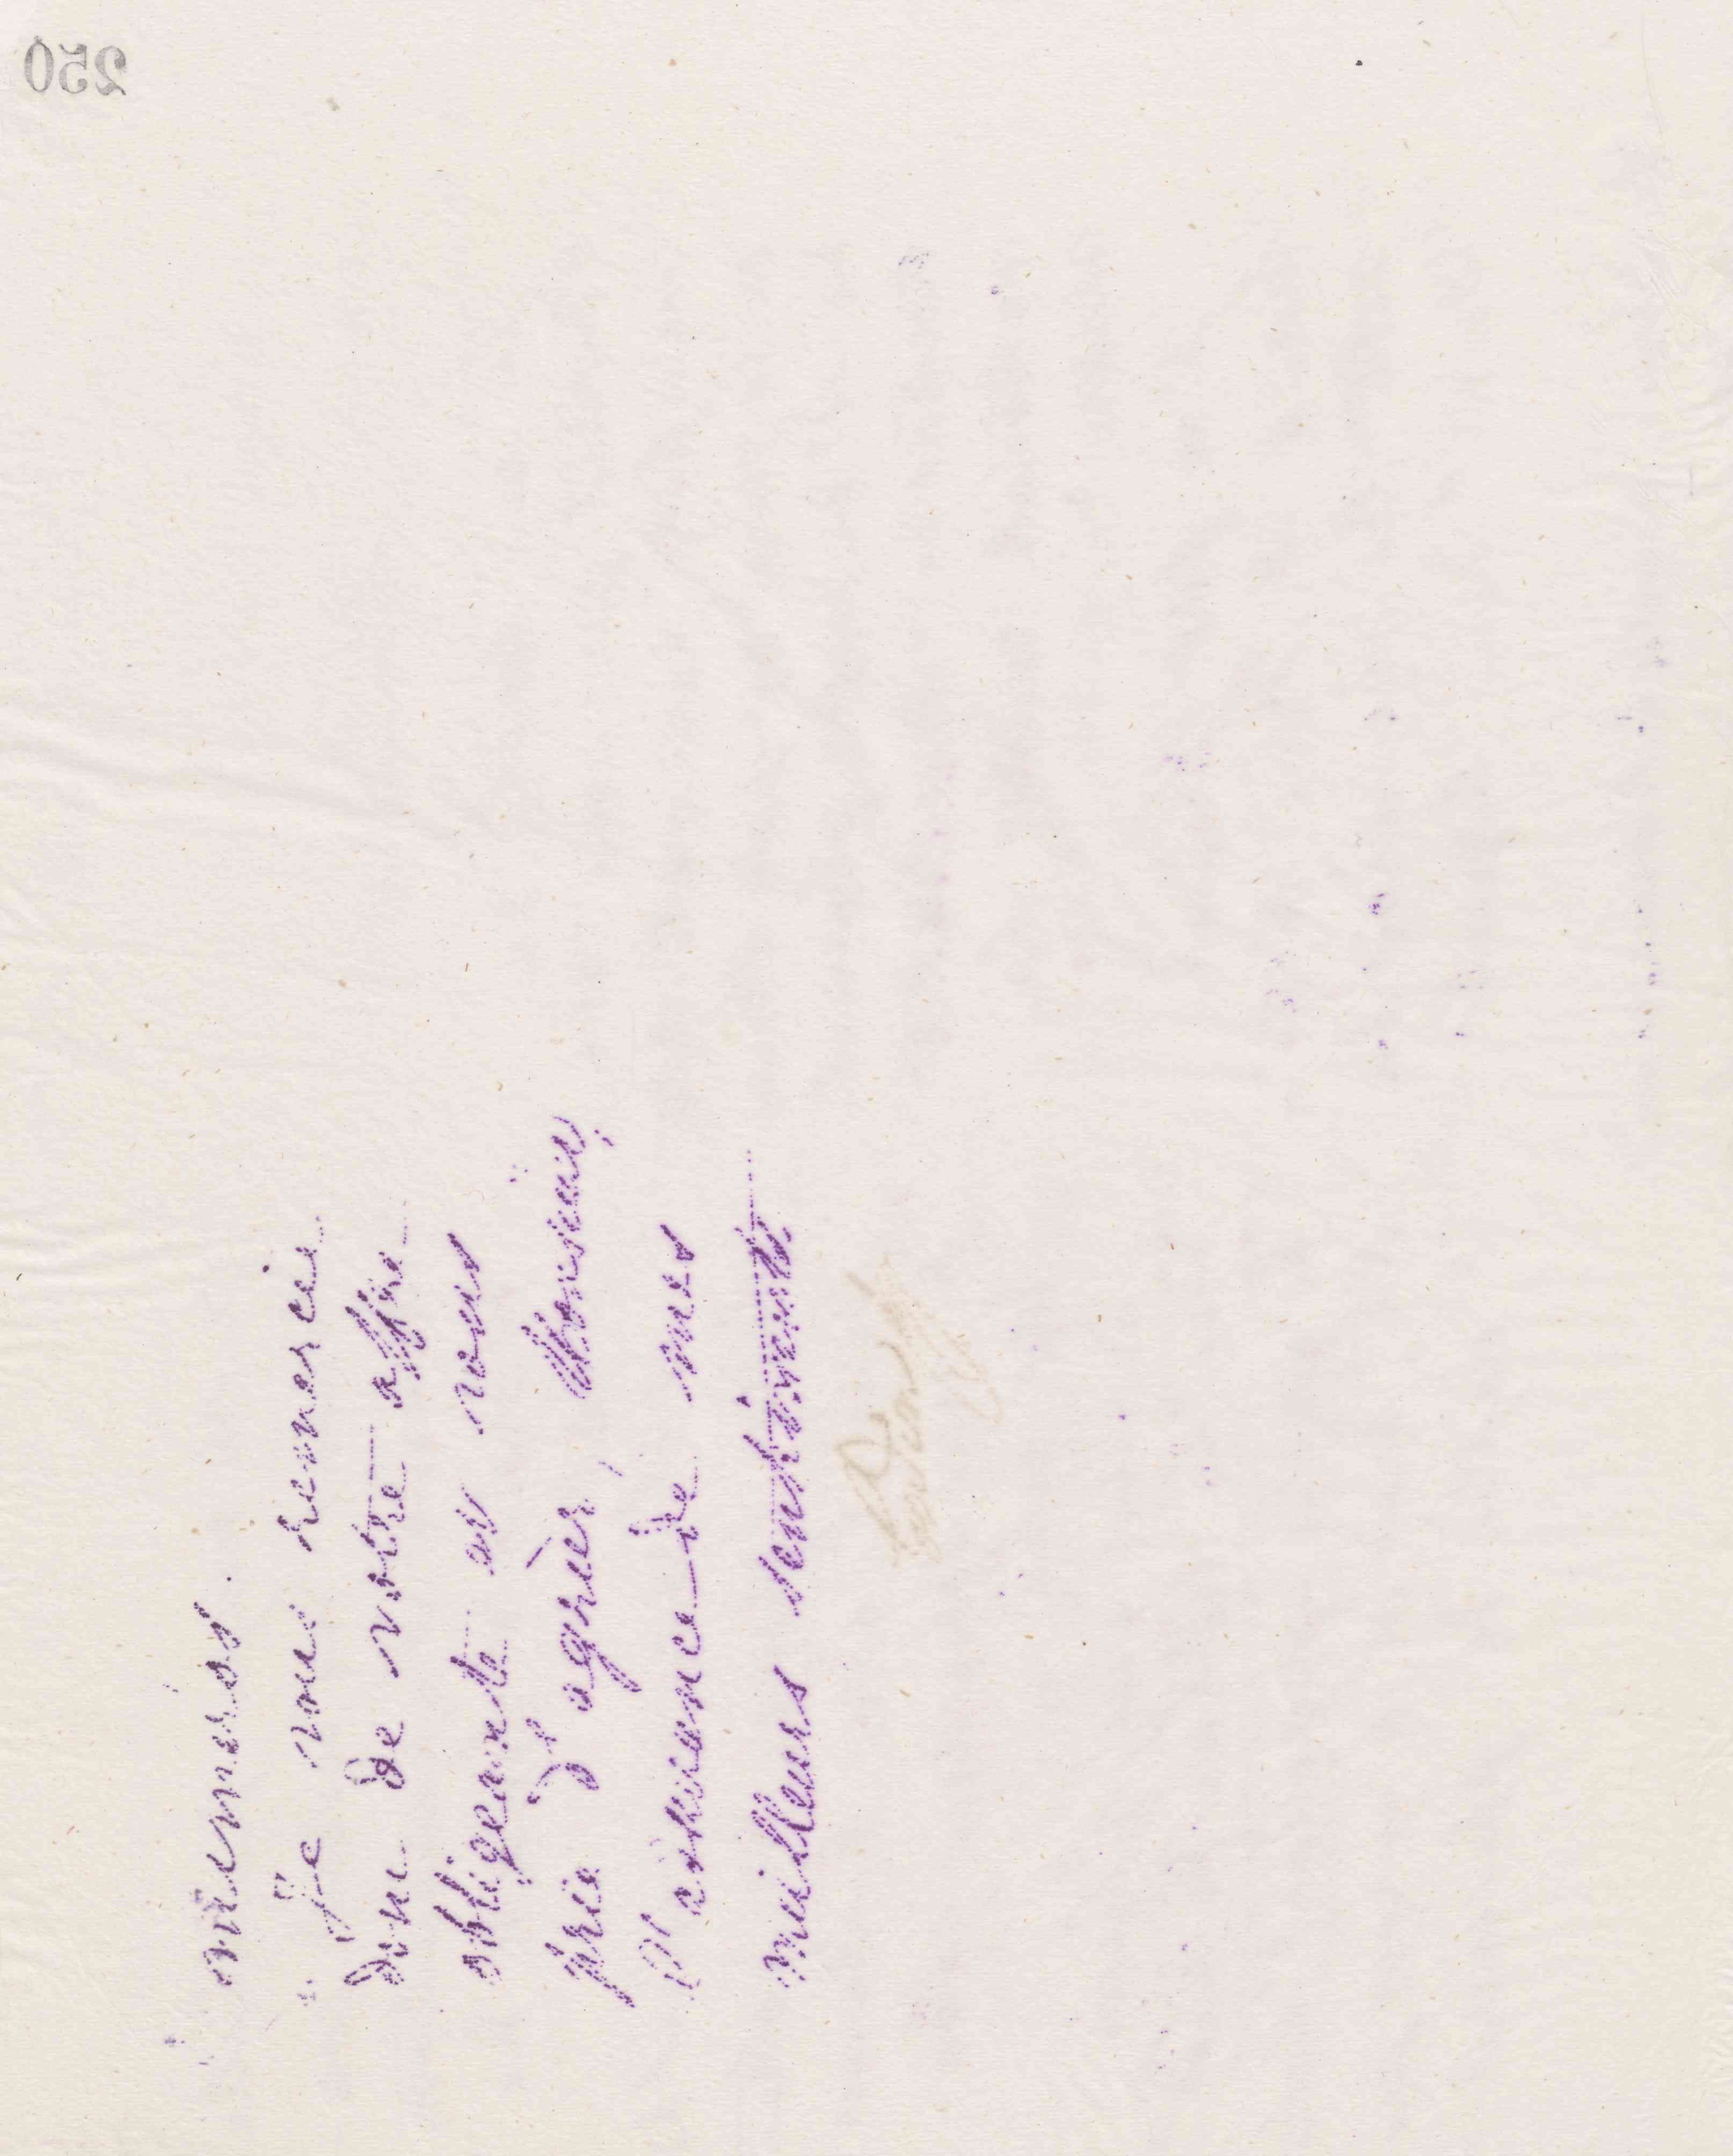 250
numéros.
Je vous remercie
donc de votre offre
obligeante et vous
prie d'agréer, Monsieur,
l'assurance de mes
meilleurs sentiments